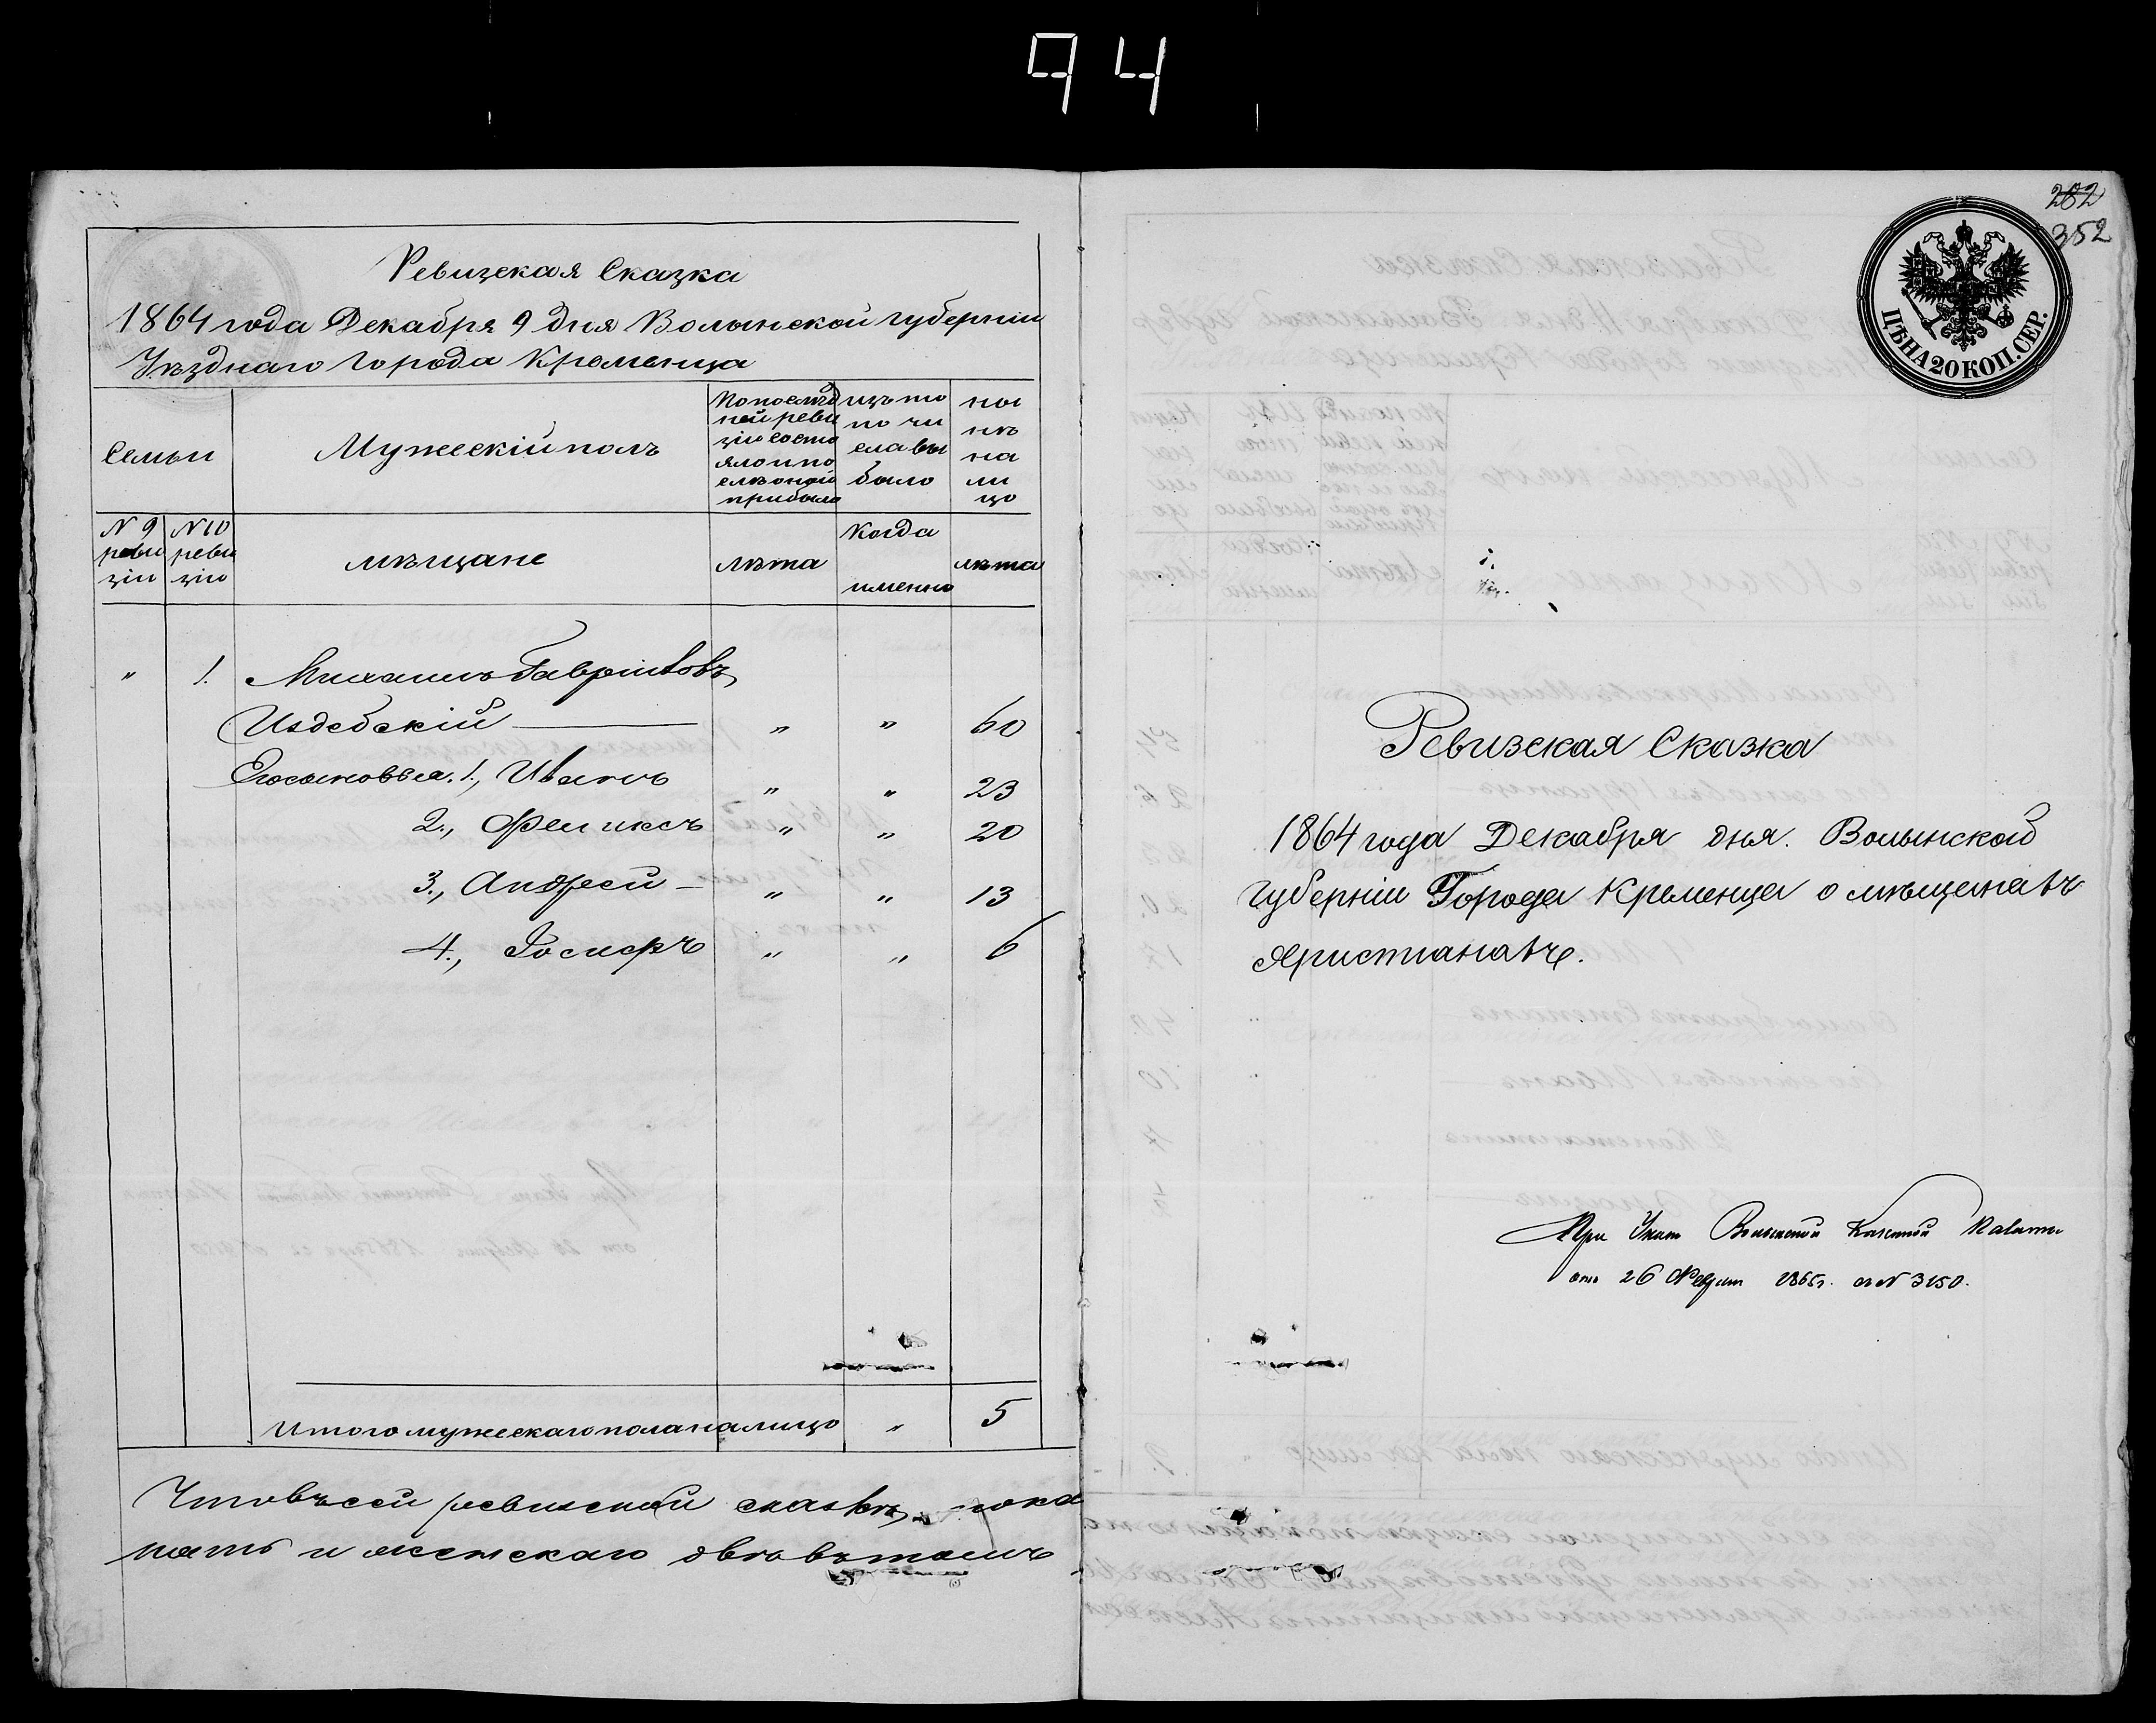 94
Ревизская Сказка
1864 года Декабря 9 дня Волынской губерніи
Уѣзднаго города Кременца
Семьи
Мужескій полъ
По послѣд
ней реви
зіи состо
яло и по
слѣ оной
прибыло
изъ то
го чи
сла вы
было
ны
нѣ
на
ли
цо
N 9
реви
зіи
N 10
реви
зіи
мѣщане
лѣта
Когда
именно
лѣта
" 1. Михаилъ Гавріиловъ
Издебскій — " " 60
Его сыновья. 1., Иванъ " " 23
2., Феликсъ " " 20
3., Андрей — " " 13
4., Іосифъ " " 6
Итого мужескаго пола налицо " 5
Что въ сей ревизской сказкѣ пока
мѣсть и женскаго обоего въ томъ
282
352
ЦѢНА 20 КОП. СЕР.
Ревизская Сказка
1864 года Декабря дня. Волынской
губерніи Города Кременца о мѣщанахъ
христіанахъ.
При Указѣ Волынской Казенной Палаты
отъ 26 Февраля 1865 г. за N 3150.